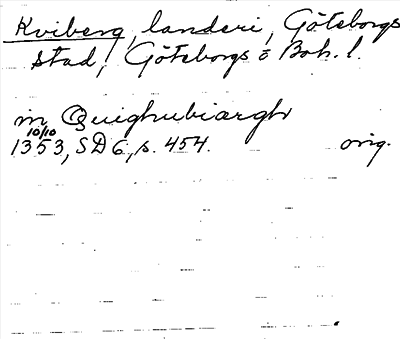 Kviberg, landeri, Göteborgs
stad, Göteborgs o Boh. l.
in Quighubiærgh
10/10
1353, SD 6, s. 454. orig.